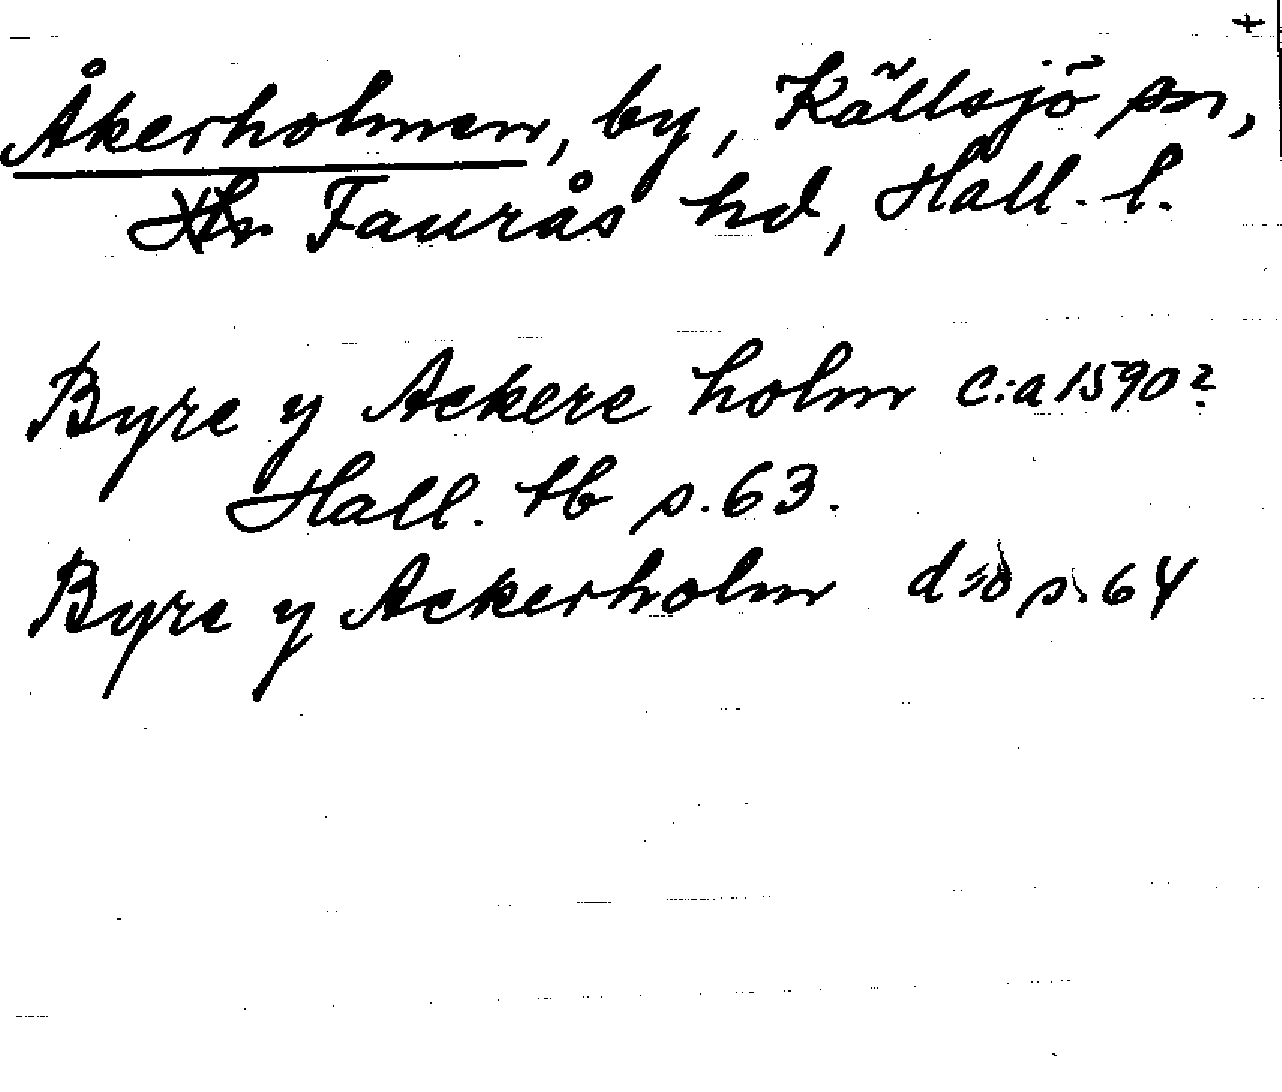 +
Åkerholmen, by, Källsjö sn,
Faurås hd, Hall. l.
Byre y Ackere holm c:a 1590?
Hall. tb s. 63.
Byre y Ackerholm d:o s. 64